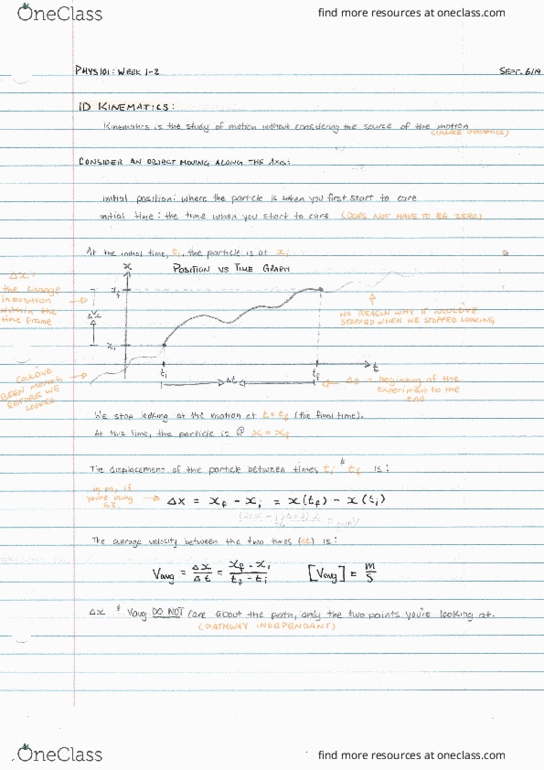 OneClass
find more resources at oneclass.com
PHYS101: WEEK 1-2
SEPT. 6/19
1D KINEMATICS:
Kinematics is the study of motion without considering the source of the motion
(UNLIKE DYNAMICS)
CONSIDER AN OBJECT MOVING ALONG THE AXIS:
initial position: where the particle is when you first start to care
initial time: the time when you start to care (DOES NOT HAVE TO BE ZERO)
At the initial time, ti, the particle is at xi
POSITION VS TIME GRAPH
x
Δx =
the change
in position
within the
time frame
xf
Δx
xi
NO REASON WHY IT WOULD'VE
STOPPED WHEN WE STOPPED LOOKING
COULD'VE
BEEN MOVING
BEFORE WE
LOOKED
ti
Δt
tf
t
beginning of the
experiment to the
end
We stop looking at the motion at t = tf (the final time).
At this time, the particle is @ x = xf
The displacement of the particle between times ti & tf is:
in m, if
you're using
SI.
Δx = xf - xi = x(tf) - x(ti)
The average velocity between the two times (Δt) is:
Vavg = Δx/Δt = xf - xi/tf - ti [Vavg] = m/s
Δx & Vavg DO NOT care about the path, only the two points you're looking at.
(PATHWAY INDEPENDANT)
OneClass
find more resources at oneclass.com